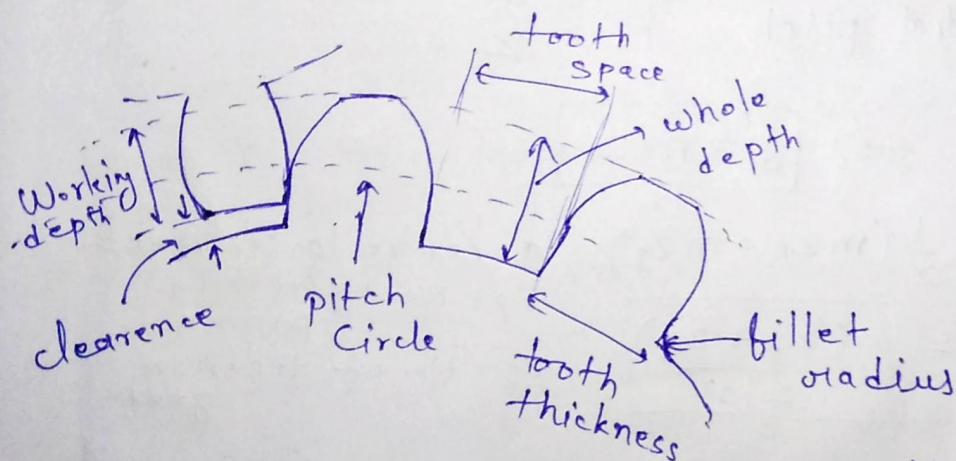 tooth
space
whole
depth
Working
depth
clearence
pitch
Circle
tooth
thickness
fillet
radius